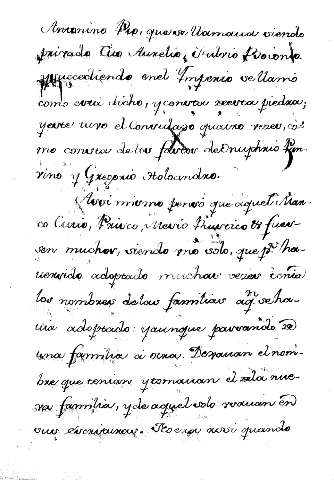 Antonino Pio, que se llamaua siendo
priuado Tito Aurelio, Fuluio Boionio
y succediendo en el Ymperio se llamó
como está dicho, y consta desta piedra,
y este tuvo el Consulado quatro vezes, co-
mo consta de los fastos de Onuphrio Pan-
vino y Gregorio Holoandro.
Assi mismo pensó que aquel Mar-
co Curio, Prisco, Mesio Rustico & fues-
sen muchos, siendo vno solo, que pr. ha-
uer sido adoptado muchas vezes tenia
los nombres de las familias aq. se ha-
uia adoptado: y aunque passando de
una familia á otra. Dexauan el nom-
bre que tenian y tomauan el de la nue-
va familia, y de aquel solo vsauan en
sus escrituras. No era assi quando